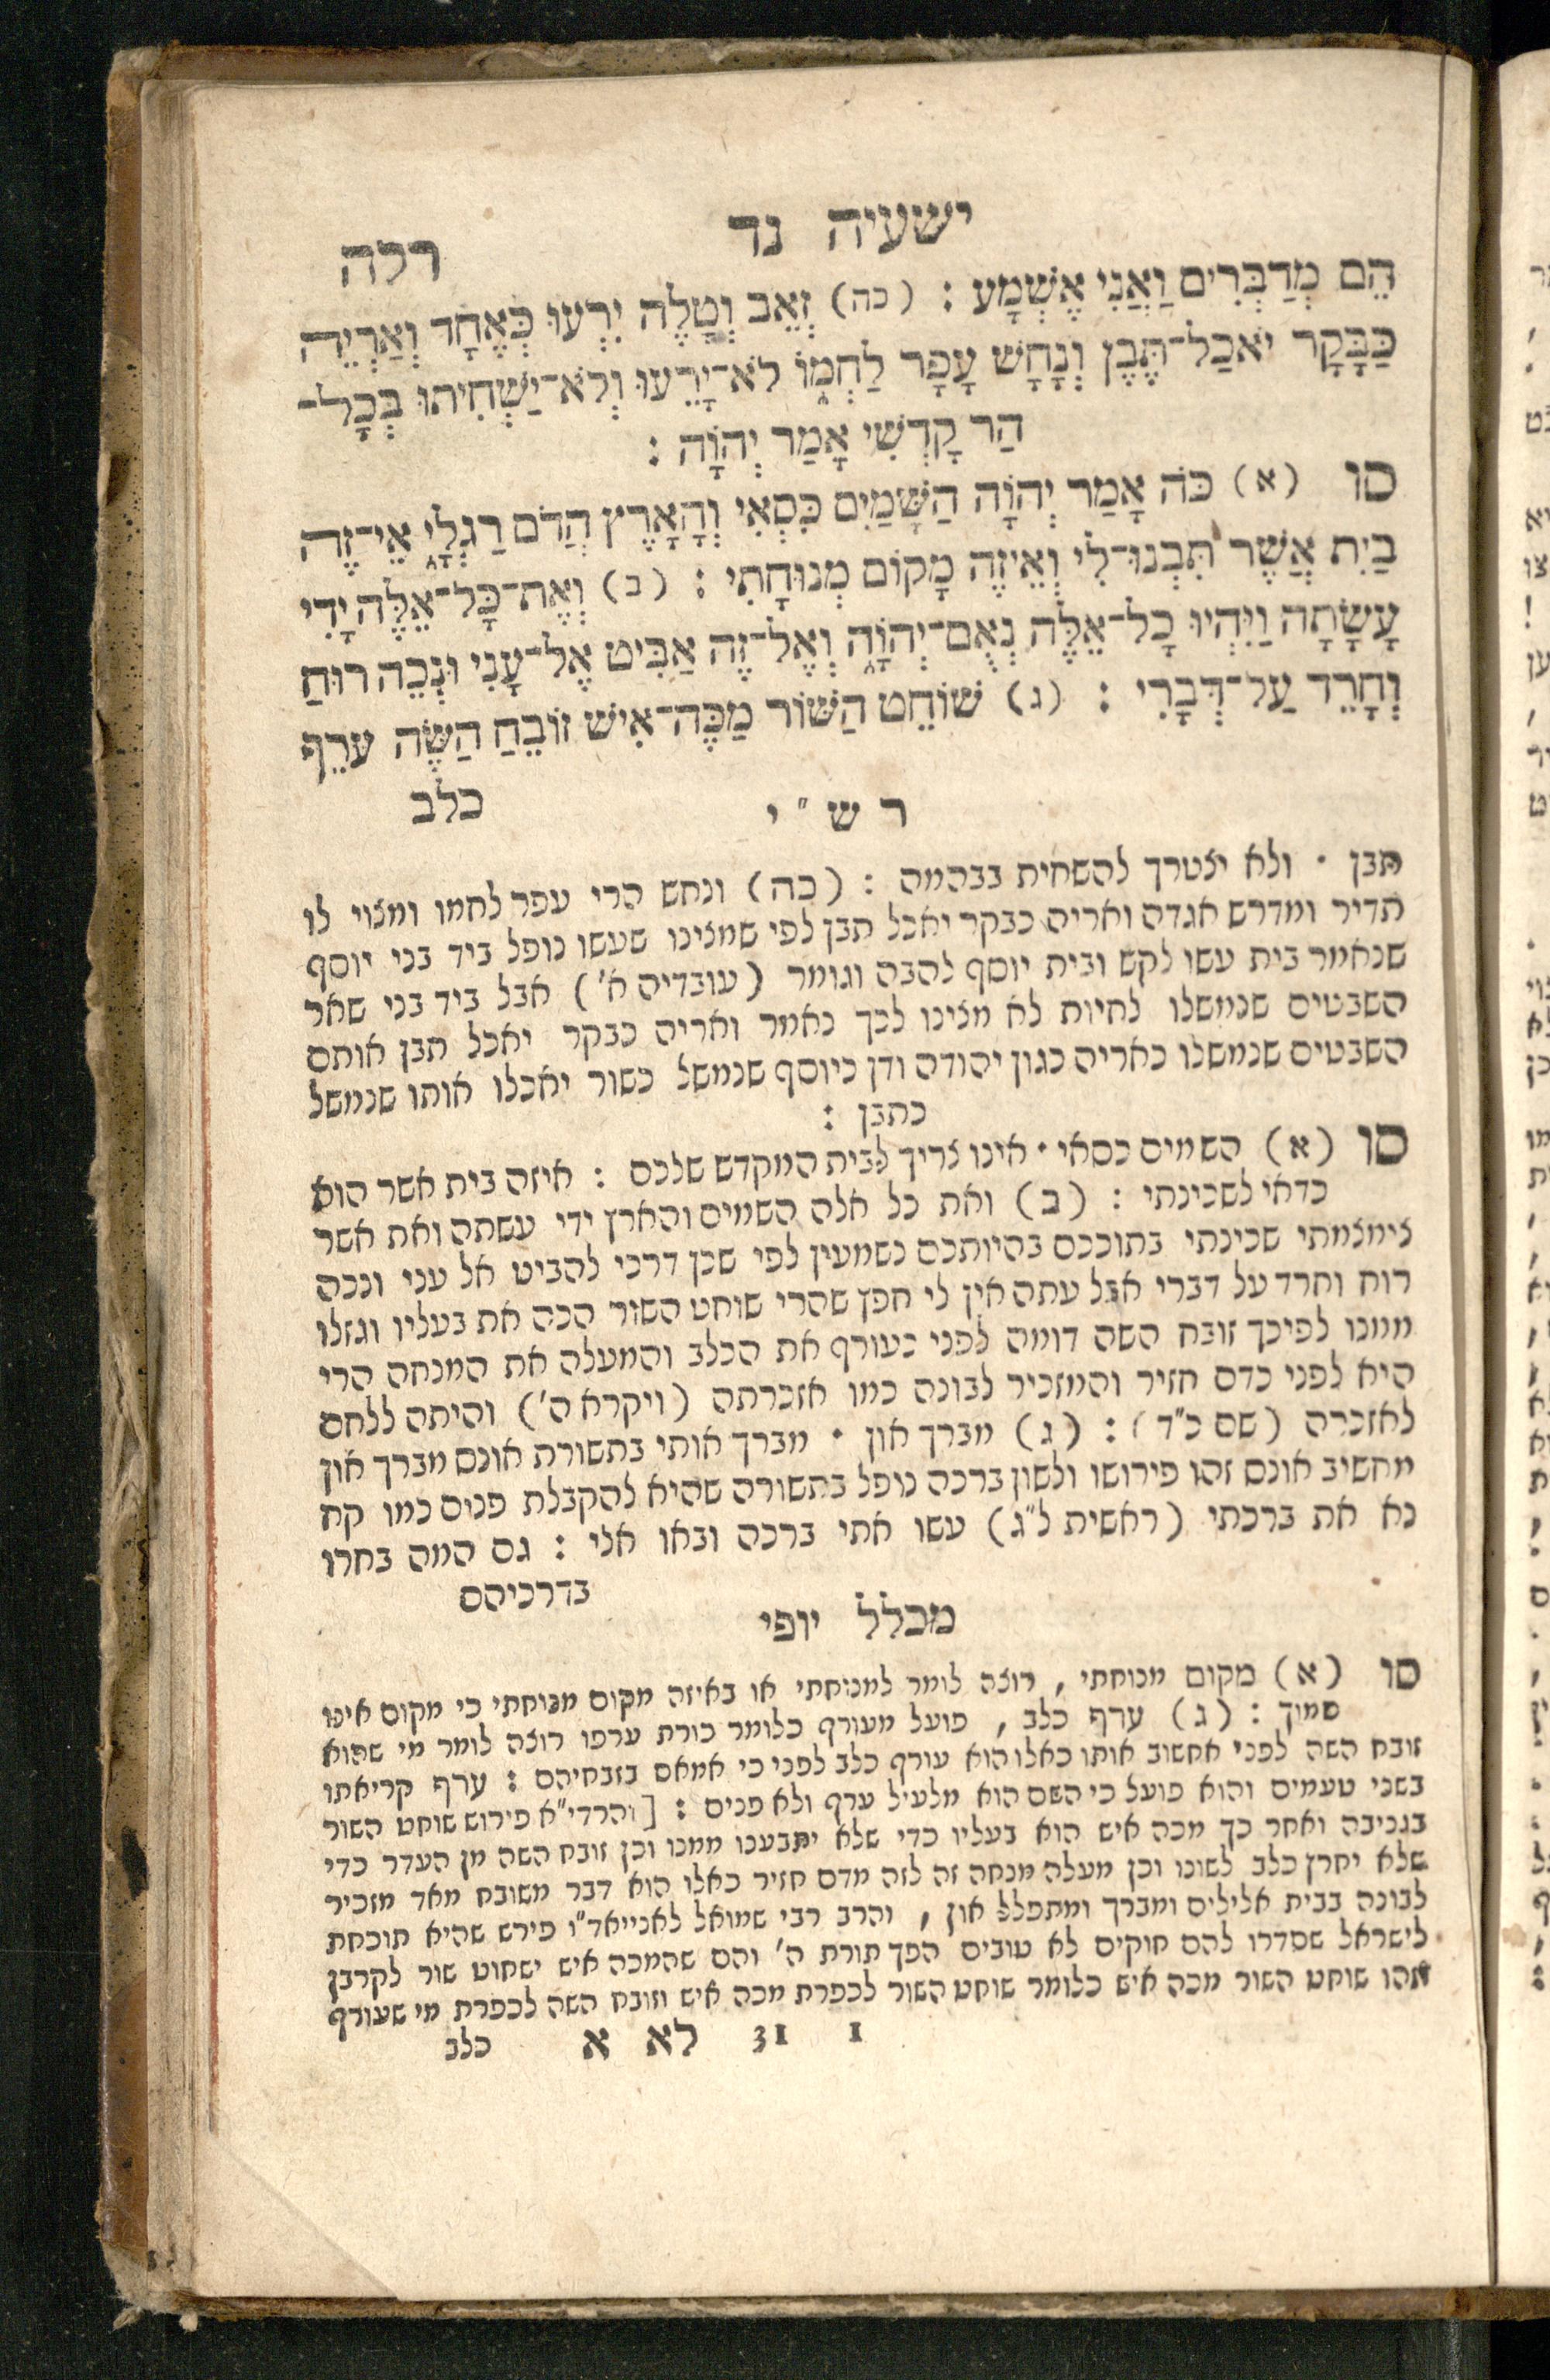 ישעיה נד
רלה
הֵם מְדַבְּרִים וַאֲנִי אֶשְׁמָע : (כה) זְאֵב וְטָלֶה יִרְעוּ כְּאֶחָד וְאַרְיֵה
כַּבָּקָר יֹאכַל־תֶּבֶן וְנָחָשׁ עָפָר לַחְמוֹ לֹא־יָרֵעוּ וְלֹא־יַשְׁחִיתוּ בְּכָל־
הַר קָדְשִׁי אָמַר יְהוָֹה :
סו (א) כֹּה אָמַר יְהוָֹה הַשָּׁמַיִם כִּסְאִי וְהָאָרֶץ הֲדֹם רַגְלָי אֵי־זֶה
בַיִת אֲשֶׁר תִּבְנוּ־לִי וְאֵיזֶה מָקוֹם מְנוּחָתִי : (ב) וְאֶת־כָּל־אֵלֶּה יָדִי
עָשָׂתָה וַיִּהְיוּ כָל־אֵלֶּה נְאֻם־יְהוָֹה וְאֶל־זֶה אַבִּיט אֶל־עָנִי וּנְכֵה רוּחַ
וְחָרֵד עַל־דְּבָרִי : (ג) שׁוֹחֵט הַשּׁוֹר מַכֶּה־אִישׁ זוֹבֵחַ הַשֶּׂה עֹרֵף
כלב
ר ש " י
תבן · ולא יצטרך להשחית בבהמה : (כה) ונחש הרי עפר לחמו ומצוי לו
תדיר ומדרש אגדה ואריה כבקר יאכל תבן לפי שמצינו שעשו נופל ביד בני יוסף
שנאמר בית עשו לקש ובית יוסף להבה וגומר (עובדיה א') אבל ביד בני שאר
השבטים שנמשלו לחיות לא מצינו לכך נאמר ואריה כבקר יאכל תבן אותם
השבטים שנמשלו כאריה כגון יהודה ודן כיוסף שנמשל כשור יאכלו אותו שנמשל
כתבן :
סו (א) השמים כסאי · אינו צריך לבית המקדש שלכם : איזה בית אשר הוא
כדאי לשכינתי : (ב) ואת כל אלה השמים והארץ ידי עשתה ואת אשר
צימצמתי שכינתי בתוככם בהיותכם נשמעין לפי שכן דרכי להביט אל עני ונכה
רוח וחרד על דברי אבל עתה אין לי חפץ שהרי שוחט השור הכה את בעליו וגזלו
ממנו לפיכך זובח השה דומה לפני כעורף את הכלב והמעלה את המנחה הרי
היא לפני כדם חזיר והמזכיר לבונה כמו אזכרתה (ויקרא ה') והיתה ללחם
לאזכרה (שם כ"ד) : (ג) מברך און · מברך אותי בתשורת אונס מברך און
מחשיב אונס זהו פירושו ולשון ברכה נופל בתשורה שהיא להקבלת פנים כמו קח
נא את ברכתי (ראשית ל"ג) עשו אתי ברכה ובאו אלי : גם המה בחרו
בדרכיהם
מכלל יופי
סו (א) מקום מנוחתי , רוצה לומר למנוחתי או באיזה מקום מנוחתי כי מקום אינו
סמוך : (ג) ערף כלב , פועל מעורף כלומר כורת ערפו רוצה לומר מי שהוא
זובח השה לפני אחשוב אותו כאלו הוא עורף כלב לפני כי אמאס בזבחיהם : ערף קריאתו
בשני טעמים והוא פועל כי השם הוא מלעיל ערף ולא פנים : [והרדי"א פירוש שוחט השור
בגניבה ואחר כך מכה איש הוא בעליו כדי שלא יתבענו ממנו וכן זובח השה מן העדר כדי
שלא יחרץ כלב לשונו וכן מעלה מנחה זה לזה מדם חזיר כאלו הוא דבר משובח מאד מזכיר
לבונה בבית אלילים ומברך ומתפלל און , והרב רבי שמואל לאנייאד"ו פירש שהיא תוכחת
לישראל שסדרו להם חוקים לא טובים הפך תורת ה' והם שהמכה איש ישחוט שור לקרבן
וזהו שוחט השור מכה איש כלומר שוחט השור לכפרת מכה איש וזובח השה לכפרת מי שעורף
1 31 לא א כלב